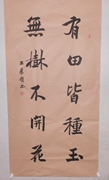 有田皆種玉
無樹不開花